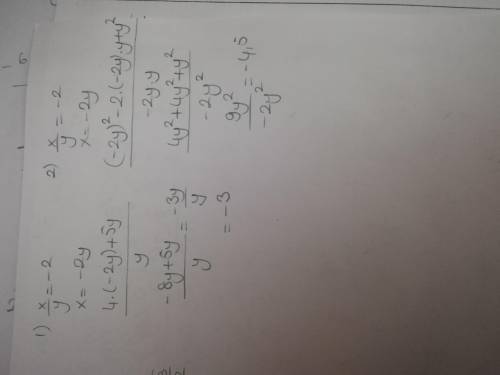 1) x/y = -2
x = -2y
4·(-2y)+5y / y
-8y+5y / y = -3y / y
= -3
2) x/y = -2
x = -2y
(-2y)²-2·(-2y)·y+y² / -2y y
4y²+4y²+y² / -2y²
9y² / -2y² = -4,5